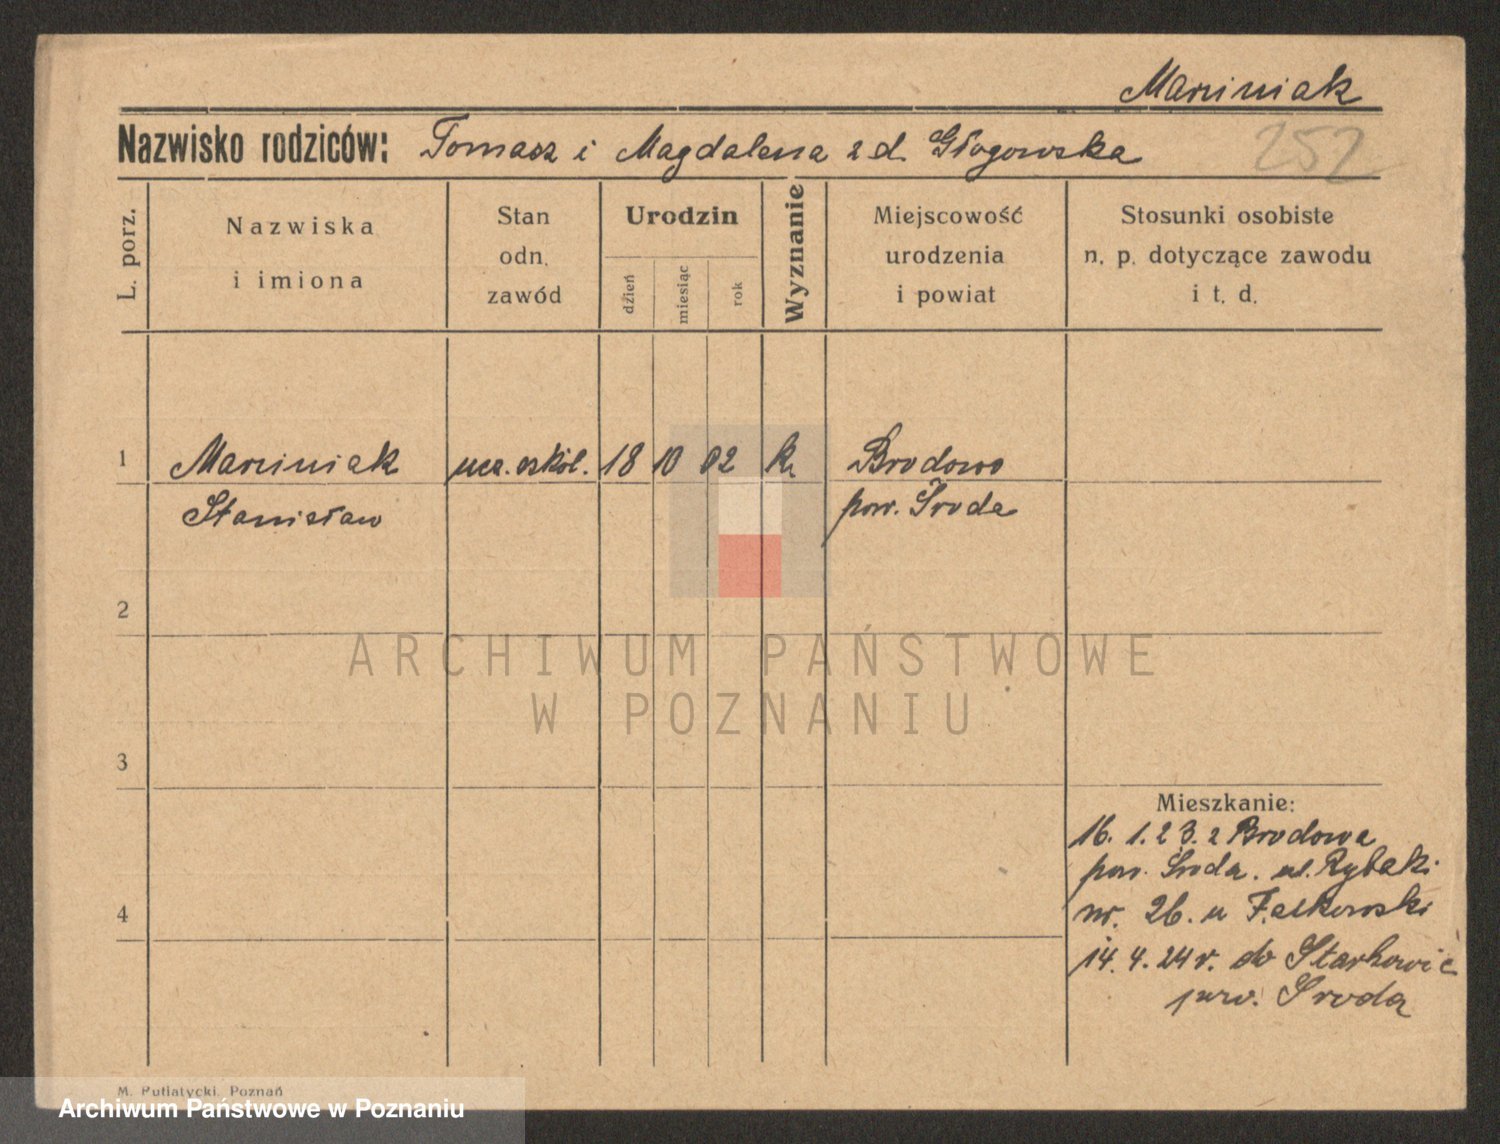 Marciniak
Nazwisko rodziców: Tomasz i Magdalena z d. Głogowska
252
L. porz.
Nazwiska
i imiona
Stan
odn.
zawód
Urodzin
dzień
miesiąc
rok
Wyznanie
Miejscowość
urodzenia
i powiat
Stosunki osobiste
n. p. dotyczące zawodu
i t. d.
1
Marciniak
Stanisław
ucz. szkol.
18
10
02
k.
Brodowo
pow. Środa
2
ARCHIWUM PAŃSTWOWE
W POZNANIU
3
Mieszkanie:
16. 1. 23. z Brodowa
pow. Środa. ul. Rybaki
nr. 26. u Falkowski
4
14. 4. 24 r. do Starkowić
pow. Środa
M. Putiatycki, Poznań
Archiwum Państwowe w Poznaniu